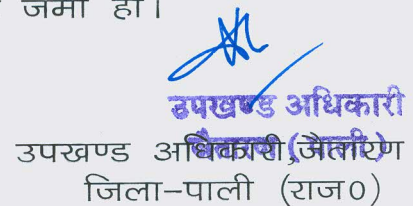 जमा हो।
उपखण्ड अधिकारी
जैतारण (पाली)
उपखण्ड अधिकारी,जैतारण
जिला–पाली (राज0)